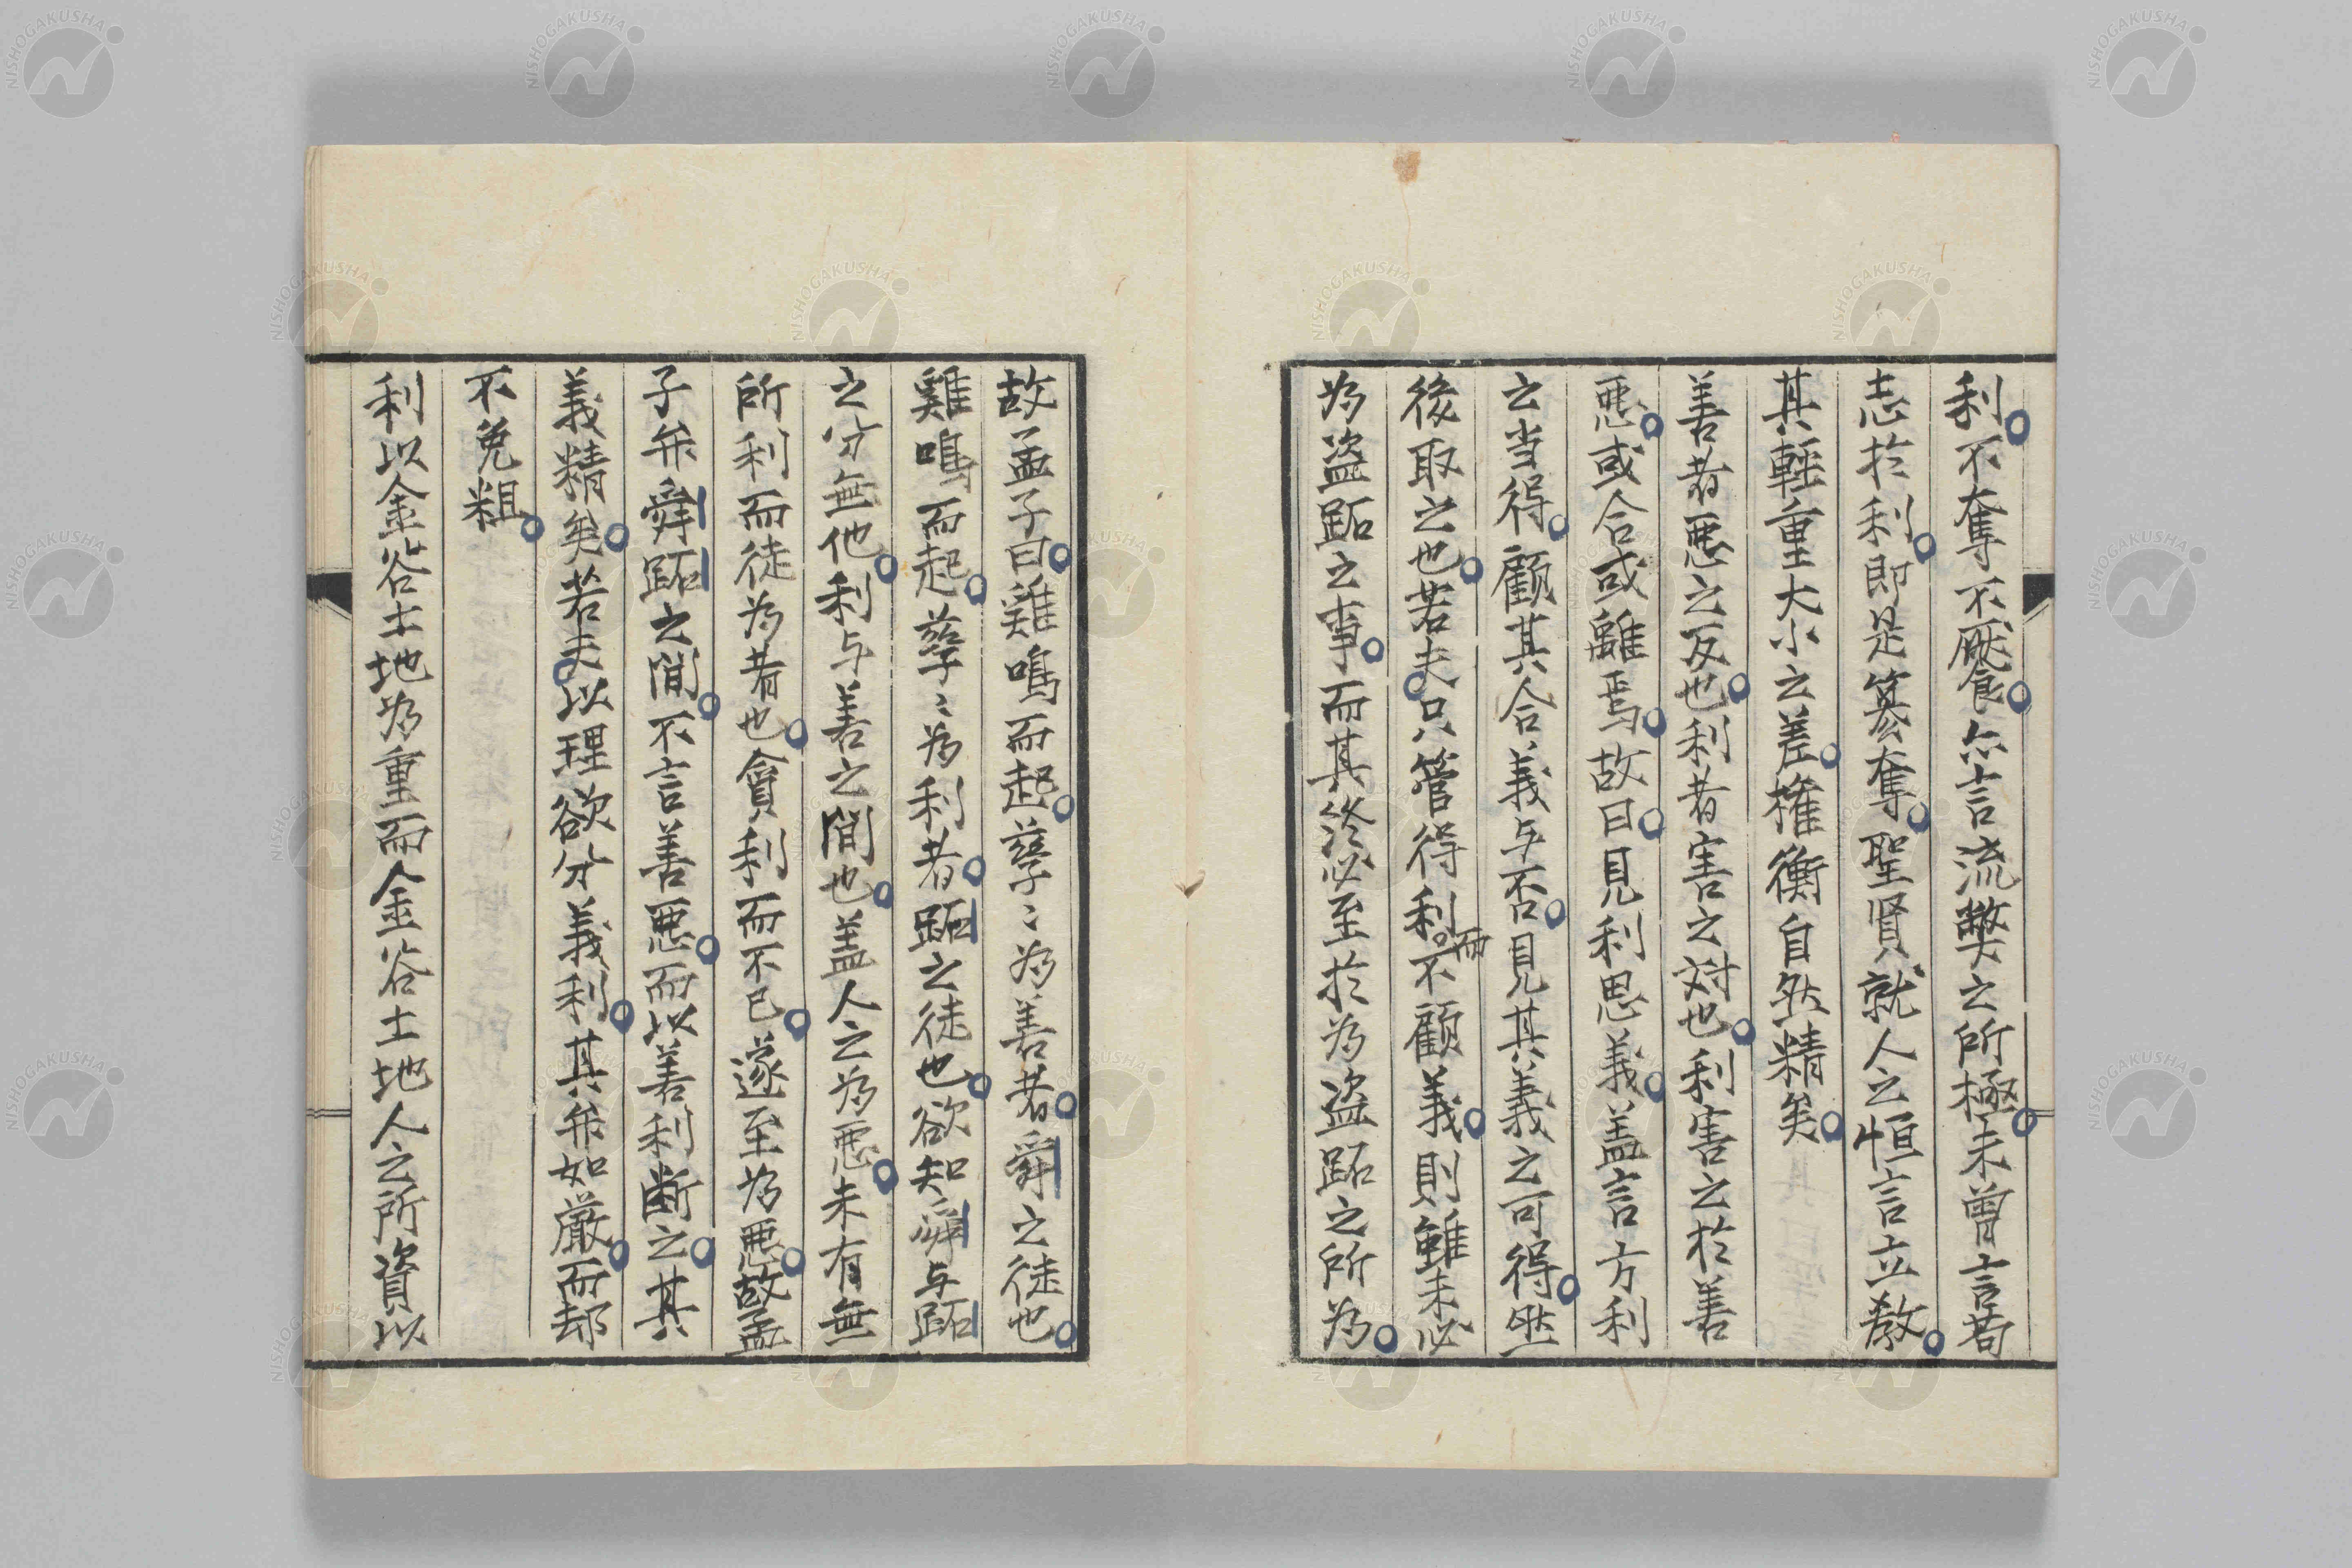 利不奪不厭食亦言流弊之所極未曽言苟
志於利即是簒奪聖賢就人之恒言立教
其輕重大小之差權衡自然精矣
善者悪之反也利者害之対也利害之於善
悪或合或離焉故曰見利思義盖言方利
之当得顧其合義与否見其義之可得然
後取之也若夫只管得利而不顧義則雖未必
為盗跖之事而其終必至於為盗跖之所為
故孟子曰雞鳴而起孳〻為善者舜之徒也
雞鳴而起孳〻為利者跖之徒也欲知舜与跖
之分無他利与善之間也盖人之為悪未有無
所利而徒為者也貪利而不已遂至為悪故孟
子弁舜跖之間不言善悪而以善利断之其
義精矣若夫以理欲分義利其弁如厳而却
不免粗
利以金谷土地為重而金谷土地人之所資以
NISHOGAKUSHA